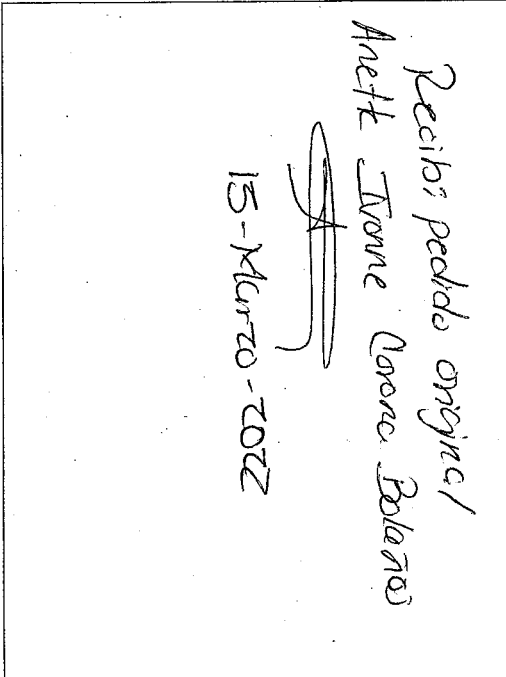 Recibi pedido original
Anett Ivonne Corona Bolaños
15-Marzo-2022